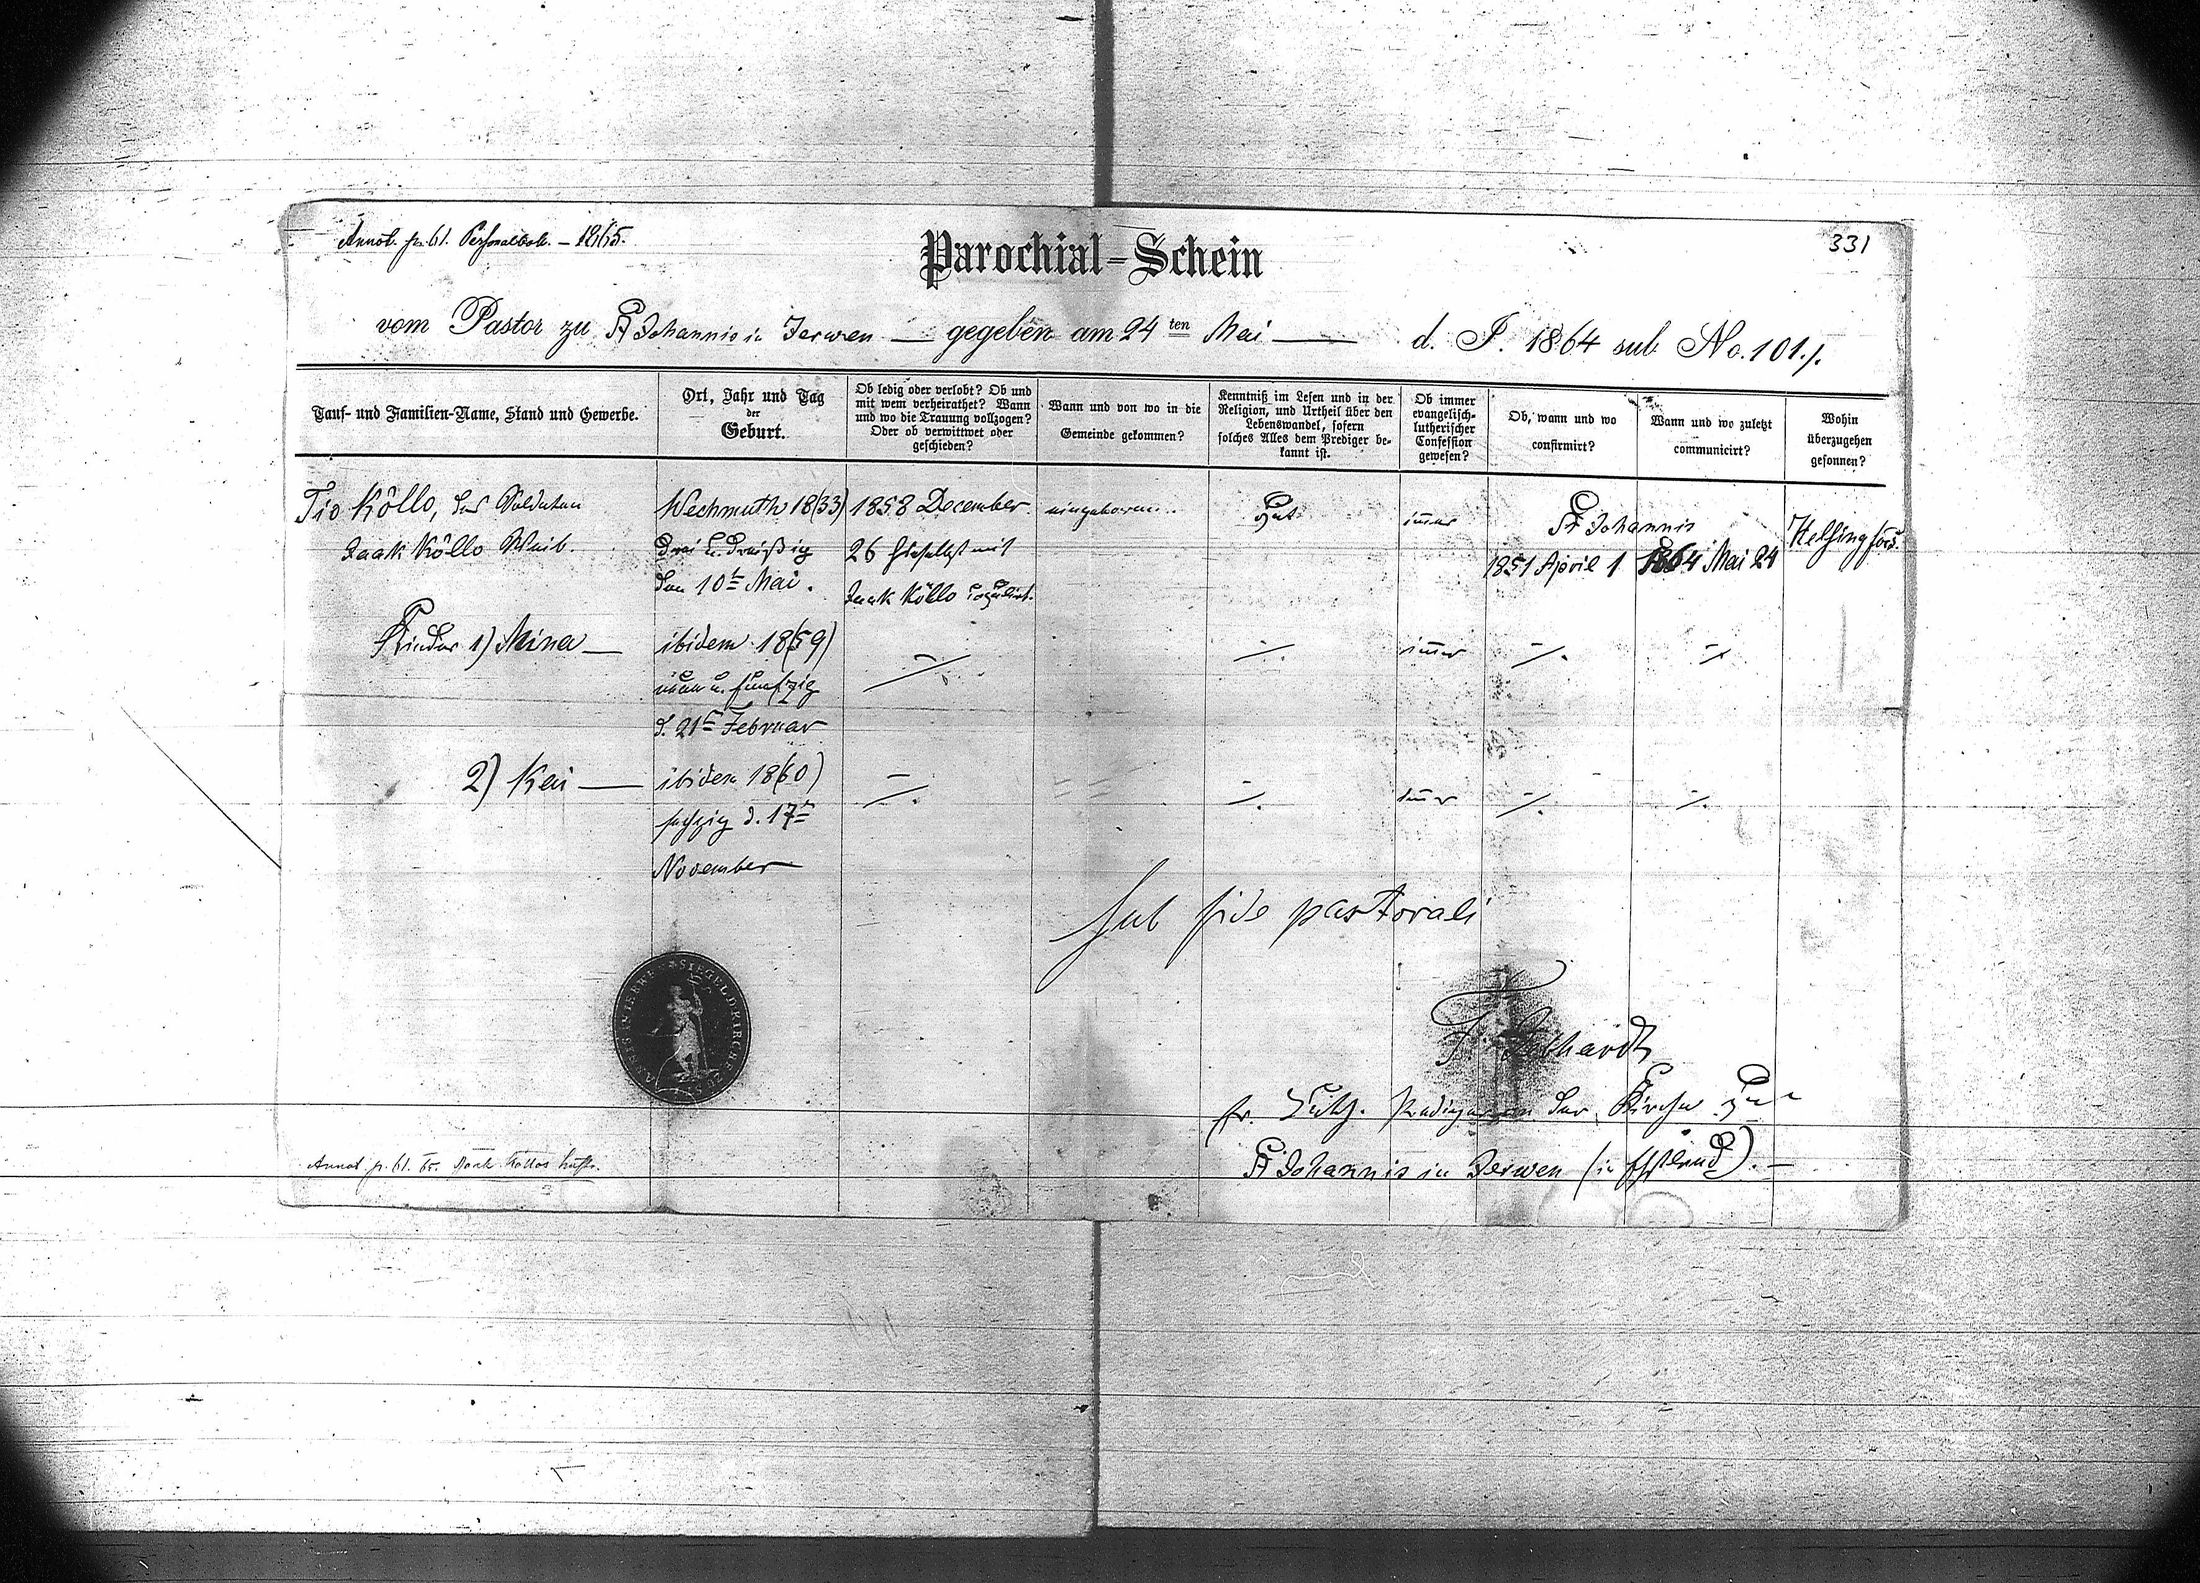 Annot. pr. 61. Personalbok. – 1865.
331
Parochial-Schein
vom Pastor zu St Johannis in Jerwen — gegeben am 24ten Mai — d. J. 1864 sub No. 101./.
Tauf- und Familien-Name, Stand und Gewerbe.
Ort, Jahr und Tag
der
Geburt.
Ob ledig oder verlobt? Ob und
mit wem verheirathet? Wann
und wo die Trauung vollzogen?
Oder ob verwittwet oder
geschieden?
Wann und von wo in die
Gemeinde gekommen?
Kenntniß im Lesen und in der
Religion, und Urtheil über den
Lebenswandel, sofern
solches Alles dem Prediger be-
kannt ist.
Ob immer
evangelisch-
lutherischer
Confession
gewesen?
Ob, wann und wo
confirmirt?
Wann und wo zuletzt
communicirt?
Wohin
überzugehen
gesonnen?
Tio Köllo, des Soldaten
Jaak Köllo Weib.
Wechmuth 18(33)
drei u. dreißig
den 10t Mai.
1858 December
26 hieselbst mit
Jaak Köllo copulirt.
eingeboren.
Gut
immer
St Johannis
1851 April 1
1864 Mai 24
Helsingfors.
Kinder 1) Mina —
ibidem 18(59)
neun u. funfzig
d. 21t Februar
immer
2) Kai —
ibidem 18(60)
sechzig d. 17t
November
immer
sub fide pastorali
F. Gebhardt
Prediger an der Kirche zu
St Johannis in Jerwen (in Ehstland). —
SIEGEL D. KIRCHE
Annot. p. 61.